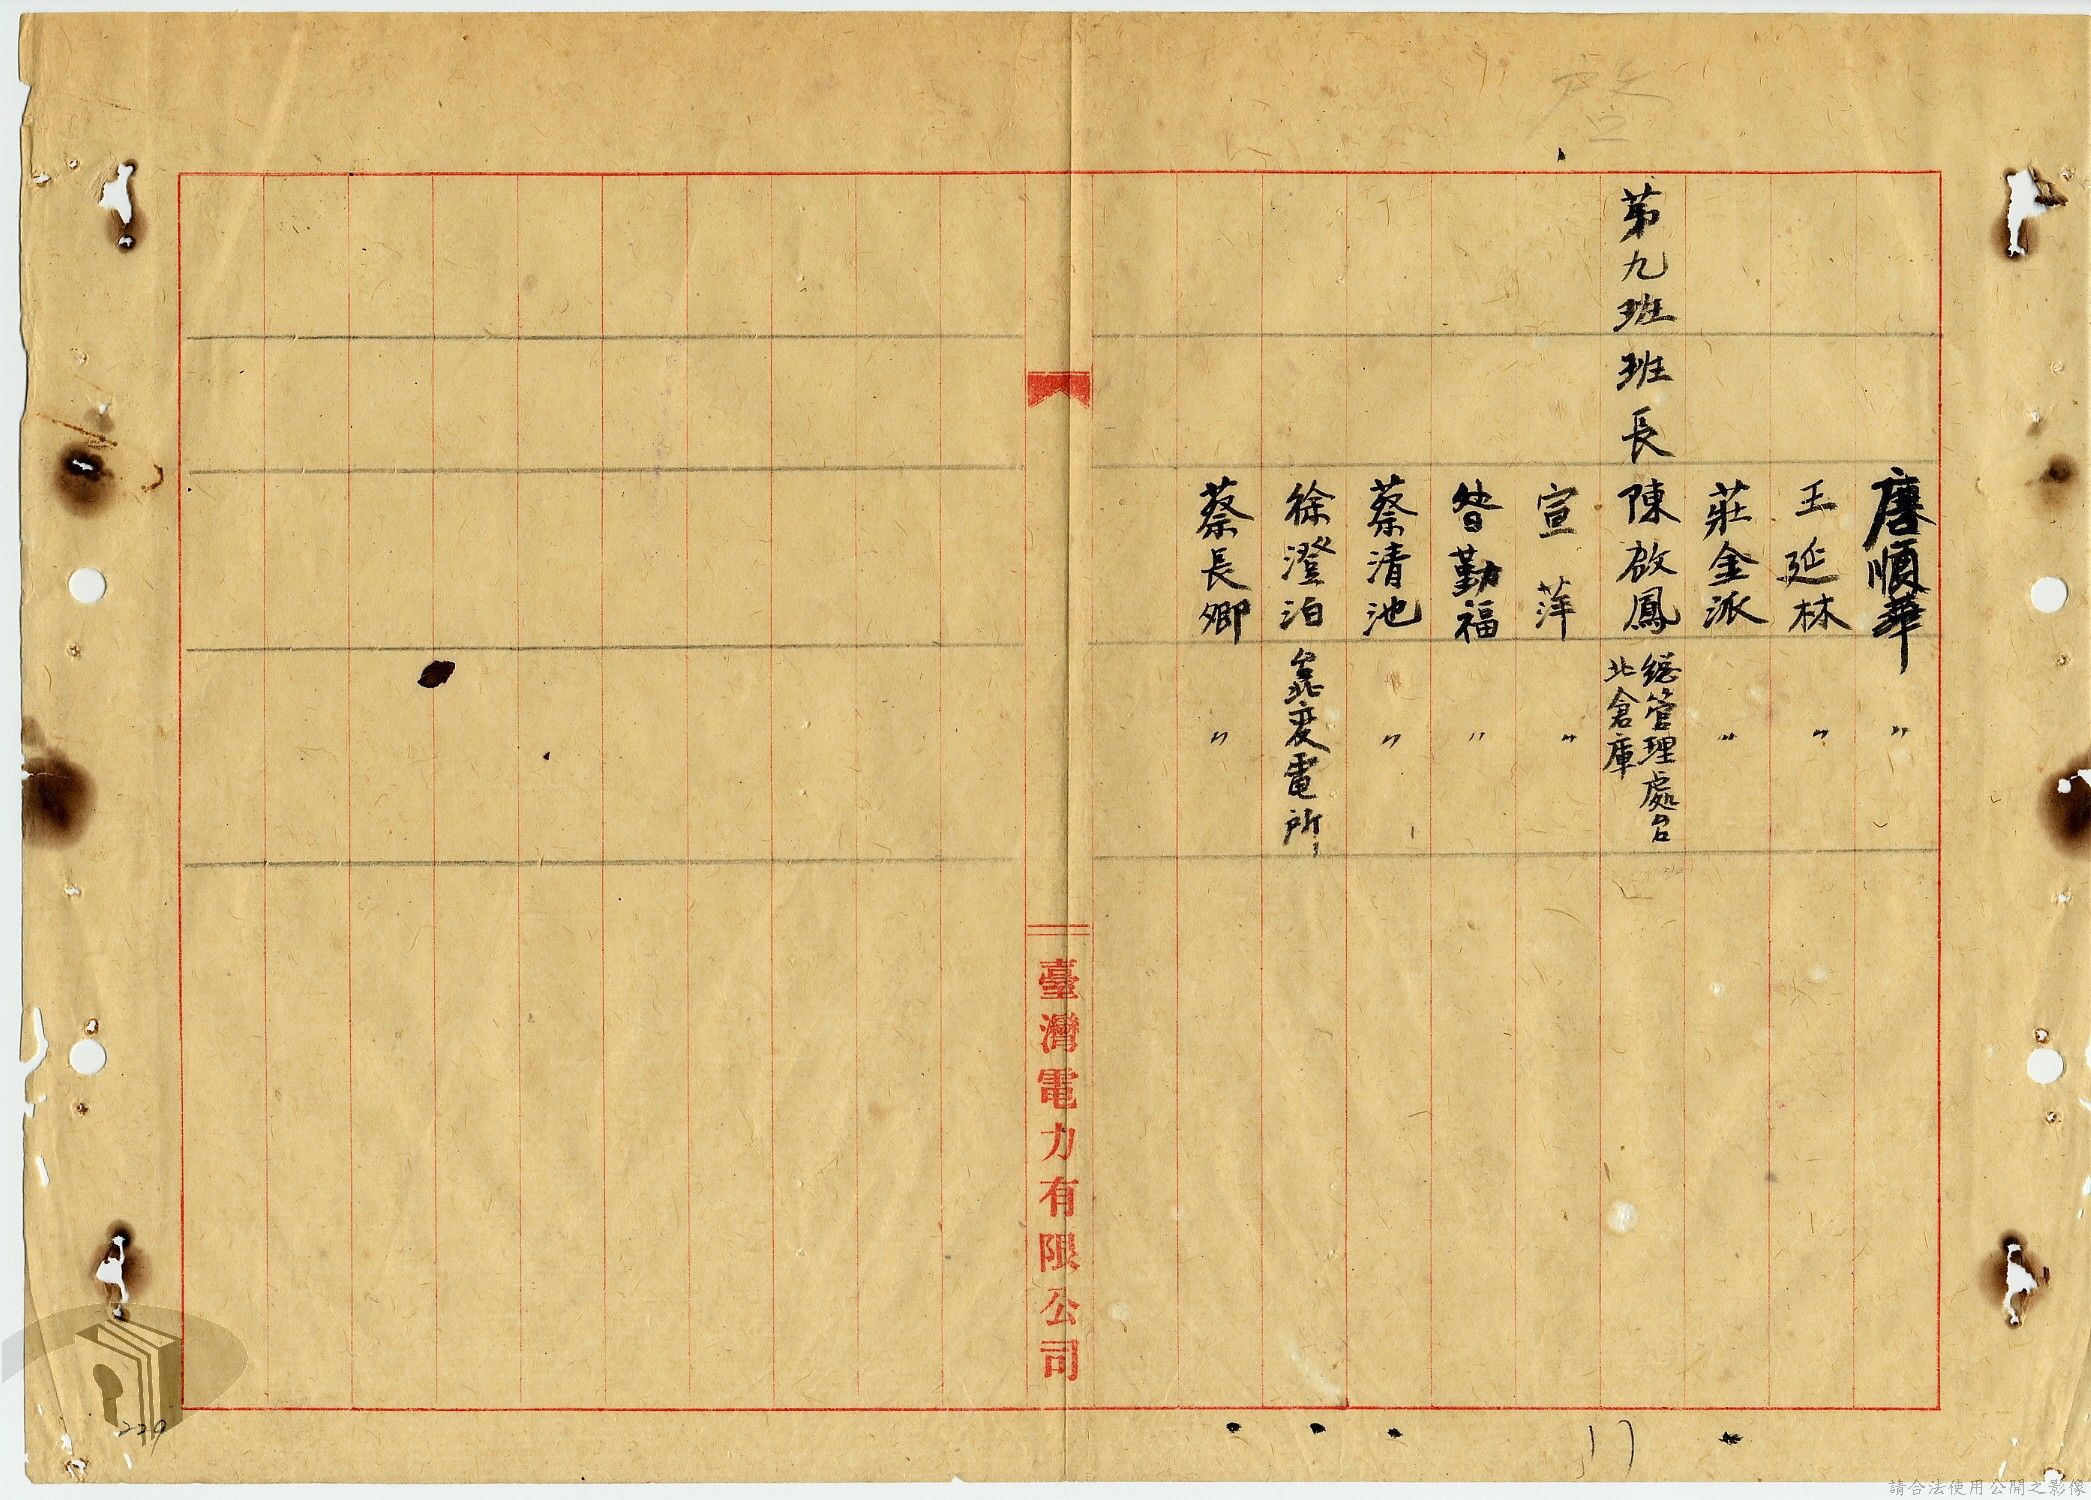 唐順華 〃
王延林 〃
莊金派 〃
第九班班長 陳啟鳳 總管理處台
北倉庫
宣萍 〃
昝勤福 〃
蔡清池 〃
徐澄泊 臺北變電所
蔡長卿 〃
臺灣電力有限公司
17
229
請合法使用公開之影像